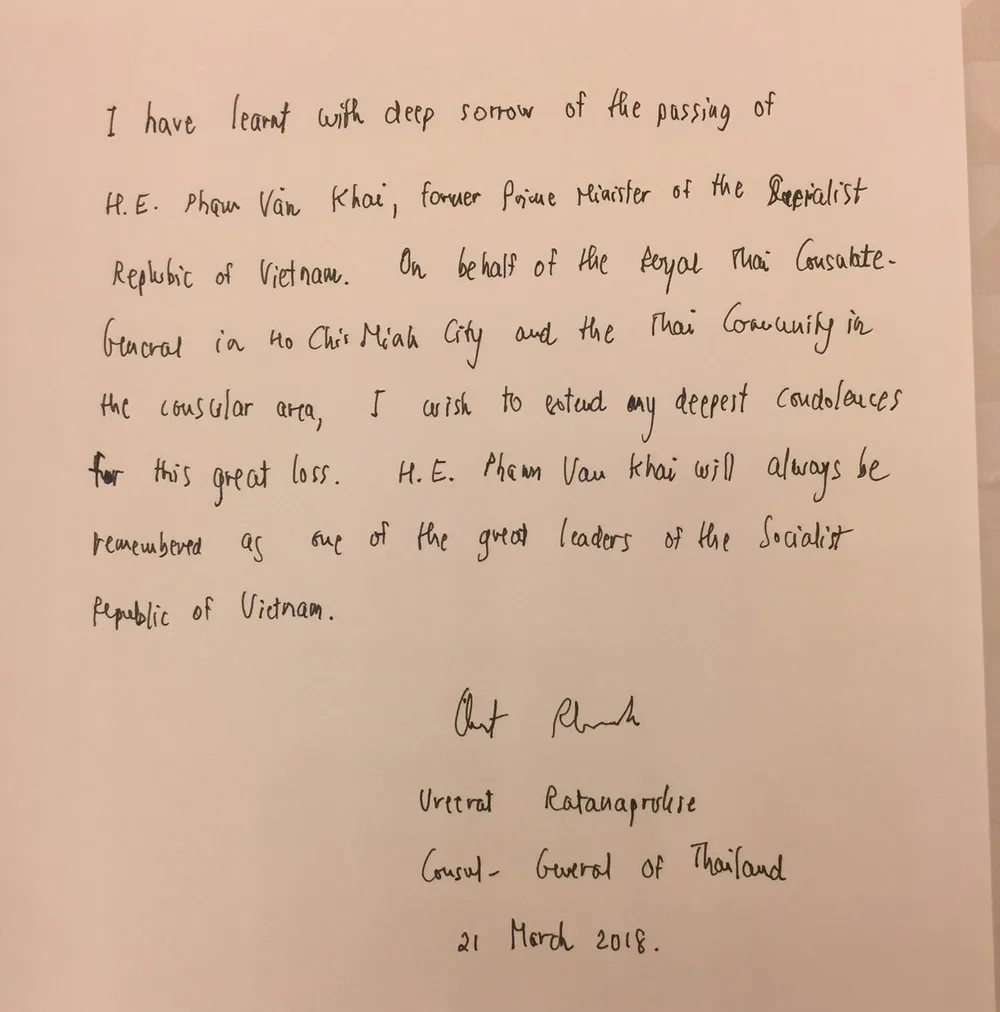 I have learnt with deep sorrow of the passing of
H.E. Phạm Văn Khai, former Prime Minister of the Socialist
Replubic of Vietnam. On behalf of the Royal Thai Consulate-
General in Ho Chi Minh City and the Thai Community in
the consular area, I wish to extend my deepest condolences
for this great loss. H.E. Pham Van Khai will always be
remembered as one of the great leaders of the Socialist
Republic of Vietnam.
Ureerat Ratanaprukse
Consul-General of Thailand
21 March 2018.